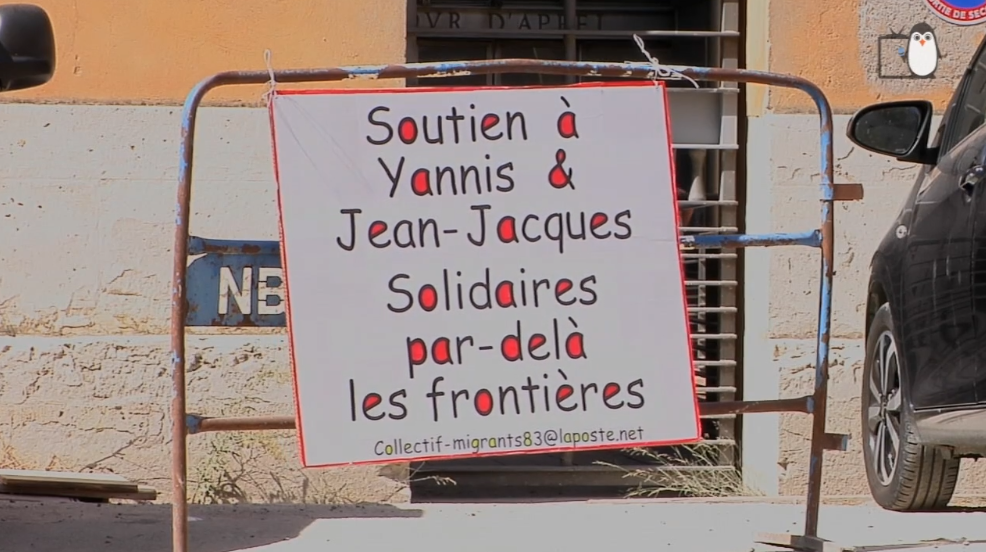 OVR D'APPEL
RTIE DE SEC
Soutien à
Yannis &
Jean-Jacques
Solidaires
par-delà
les frontières
Collectif-migrants83@laposte.net
NB